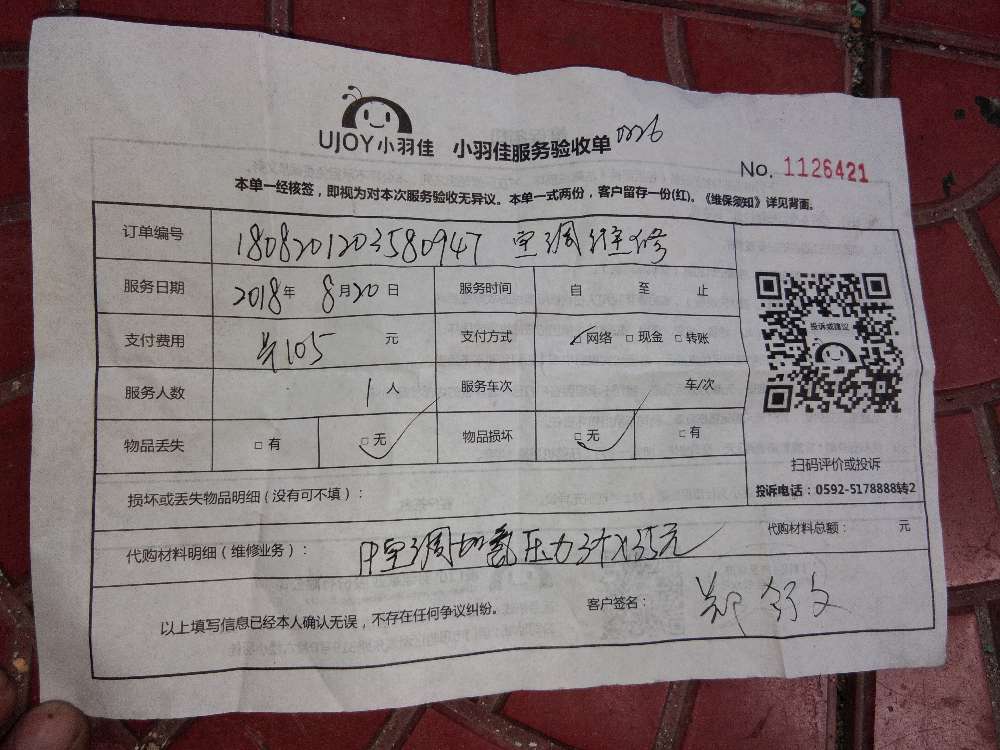 UJOY小羽佳 小羽佳服务验收单 0226
No. 1126421
本单一经核签，即视为对本次服务验收无异议。本单一式两份，客户留存一份(红)。《维保须知》详见背面。
订单编号 1808201203580947 空调维修
服务日期 2018年 8月20日 服务时间 自 至 止
支付费用 共105 元 支付方式 ☑网络 □现金 □转账
服务人数 1人 服务车次 车/次
物品丢失 □有 ☑无 物品损坏 ☑无 □有
投诉或建议
扫码评价或投诉
投诉电话：0592-5178888转2
损坏或丢失物品明细（没有可不填）：
代购材料明细（维修业务）： 空调加氟压力3计x35元
代购材料总额： 元
以上填写信息已经本人确认无误，不存在任何争议纠纷。
客户签名：